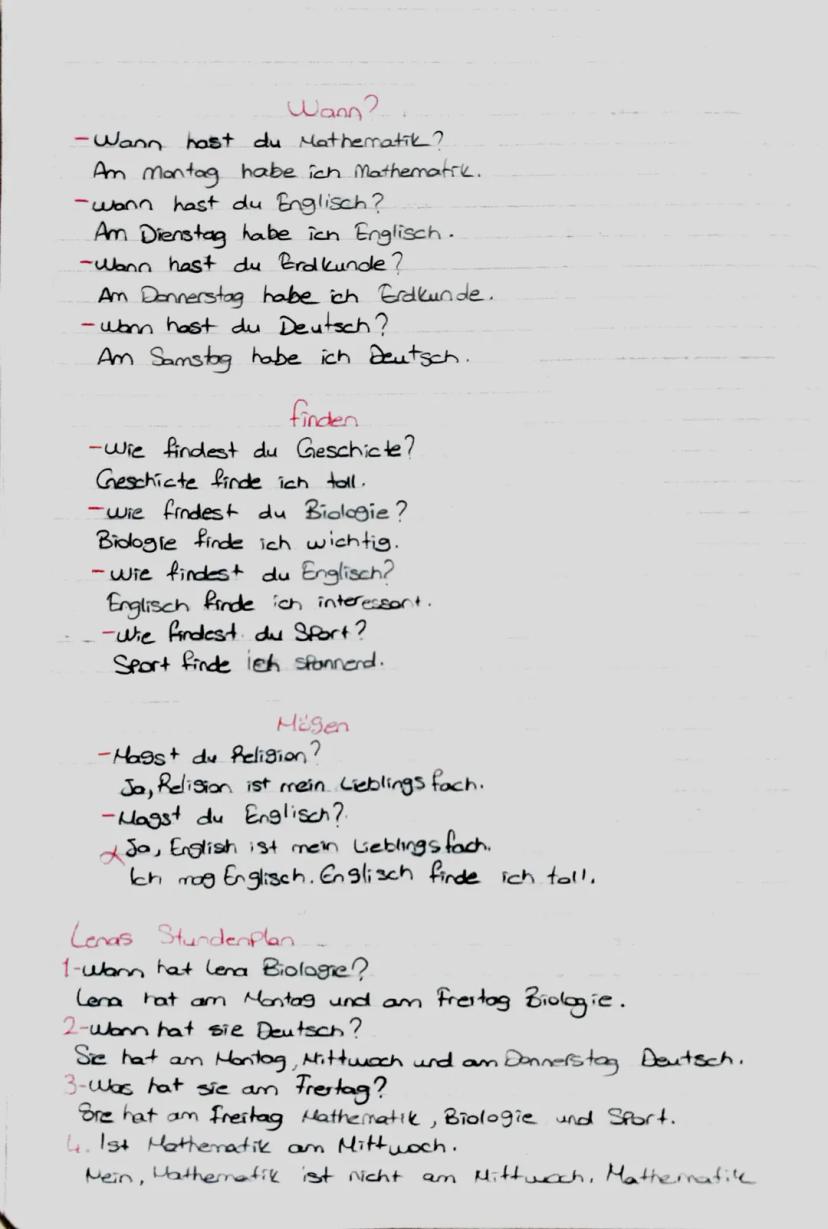 Wann?
-Wann hast du Mathematik?
Am Montag habe ich Mathematik.
-wann hast du Englisch?
Am Dienstag habe ich Englisch.
-Wann hast du Erdkunde?
Am Donnerstag habe ich Erdkunde.
-wann hast du Deutsch?
Am Samstag habe ich Deutsch.
finden
-Wie findest du Geschicte?
Geschicte finde ich toll.
-wie findest du Biologie?
Biologie finde ich wichtig.
-wie findest du Englisch?
Englisch finde ich interessant.
-Wie findest du Sport?
Sport finde ich spannend.
Mögen
-Magst du Religion?
Ja, Religion ist mein Lieblingsfach.
-Magst du Englisch?
Ja, English ist mein Lieblingsfach.
Ich mag Englisch. Englisch finde ich toll.
Lenas Stundenplan
1-wann hat Lena Biologie?
Lena hat am Montag und am Freitag Biologie.
2-wann hat sie Deutsch?
Sie hat am Montag, Mittwoch und am Donnerstag Deutsch.
3-Was hat sie am Freitag?
Sie hat am Freitag Mathematik, Biologie und Sport.
4. Ist Mathematik am Mittwoch.
Nein, Mathematik ist nicht am Mittwoch. Mathematik